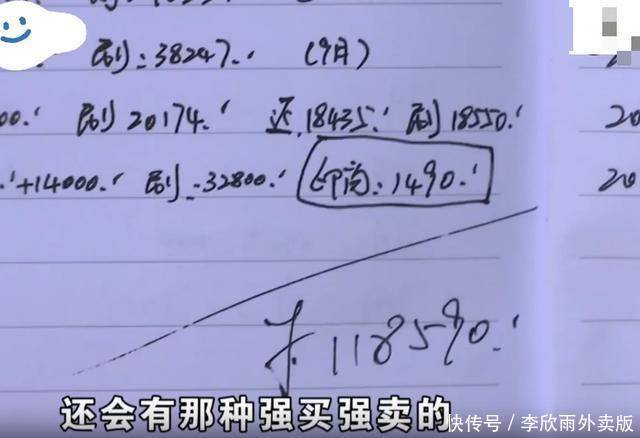 刷:38247. (9月)
00. 刷 20174. 还.18435. 刷 18550. 20
+14000. 刷 -32800. 印尚:1490. 20
118590.
还会有那种强买强卖的
快传号/李欣雨外卖版